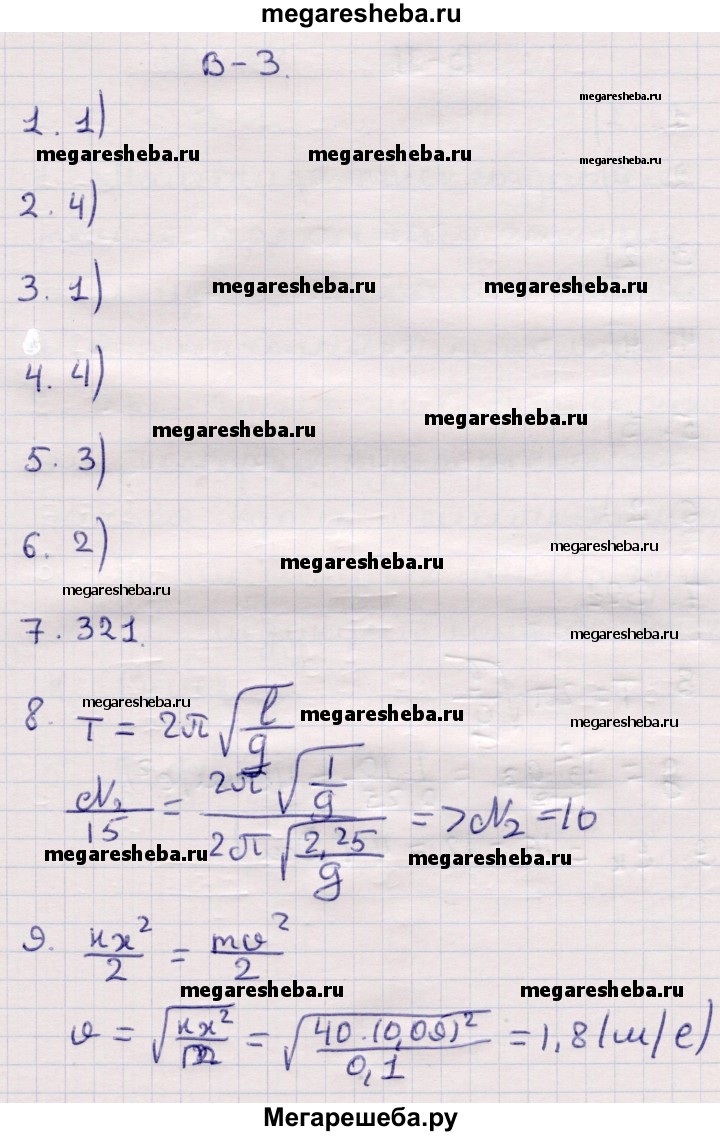 megaresheba.ru
В-3.
megaresheba.ru
1. 1)
megaresheba.ru megaresheba.ru megaresheba.ru
2. 4)
3. 1) megaresheba.ru megaresheba.ru
4. 4)
megaresheba.ru megaresheba.ru
5. 3)
6. 2) megaresheba.ru megaresheba.ru
megaresheba.ru
7. 321. megaresheba.ru
8. megaresheba.ru megaresheba.ru megaresheba.ru
T = 2π√(l/g)
N₂/15 = 2π√(1/g) / 2π√(2,25/g) => N₂ = 10
megaresheba.ru megaresheba.ru
9. кx²/2 = mυ²/2
megaresheba.ru megaresheba.ru
υ = √(кx²/m) = √(40·(0,09)²/0,1) = 1,8 (м/с)
Мегарешеба.ру